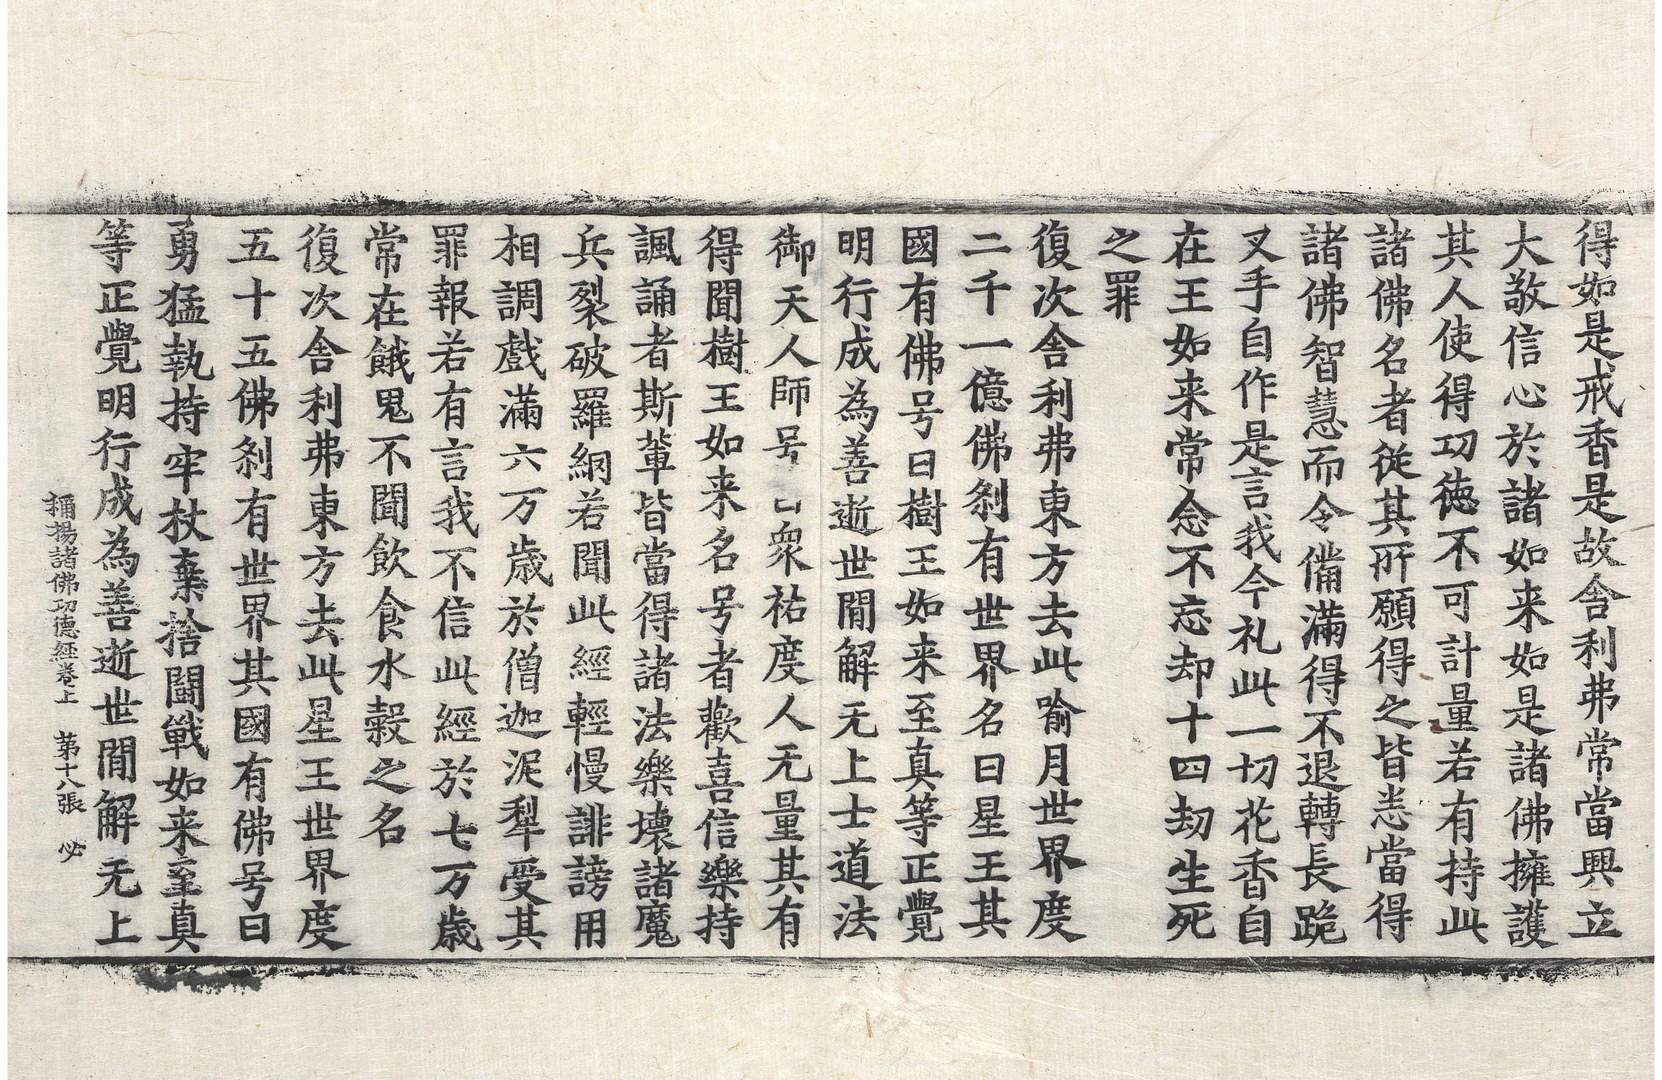 得如是戒香是故舎利弗常當興立
大敬信心於諸如来如是諸佛擁護
其人使得功徳不可計量若有持此
諸佛名者從其所願得之皆悉當得
諸佛智慧而令備滿得不退轉長跪
叉手自作是言我今礼此一切花香自
在王如来常念不忘却十四劫生死
之罪
復次舎利弗東方去此喻月世界度
二千一億佛刹有世界名曰星王其
國有佛号曰樹王如来至真等正覺
明行成為善逝世間解无上士道法
御天人師号 衆祐度人无量其有
得聞樹王如来名号者歡喜信樂持
諷誦者斯輩皆當得諸法樂壞諸魔
兵裂破羅網若聞此經輕慢誹謗用
相調戲滿六万歲於僧迦泥犁受其
罪報若有言我不信此經於七万歲
常在餓鬼不聞飲食水穀之名
復次舎利弗東方去此星王世界度
五十五佛刹有世界其國有佛号曰
勇猛執持牢杖棄捨闘戰如来至真
等正覺明行成為善逝世間解无上
稱揚諸佛功德經卷上 第十八張 必